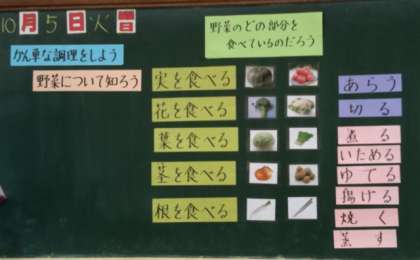 10月5日火曜
かん単な調理をしよう
野菜について知ろう
野菜のどの部分を
食べているのだろう
実を食べる
花を食べる
葉を食べる
茎を食べる
根を食べる
あらう
切る
煮る
いためる
ゆでる
揚げる
焼く
蒸す